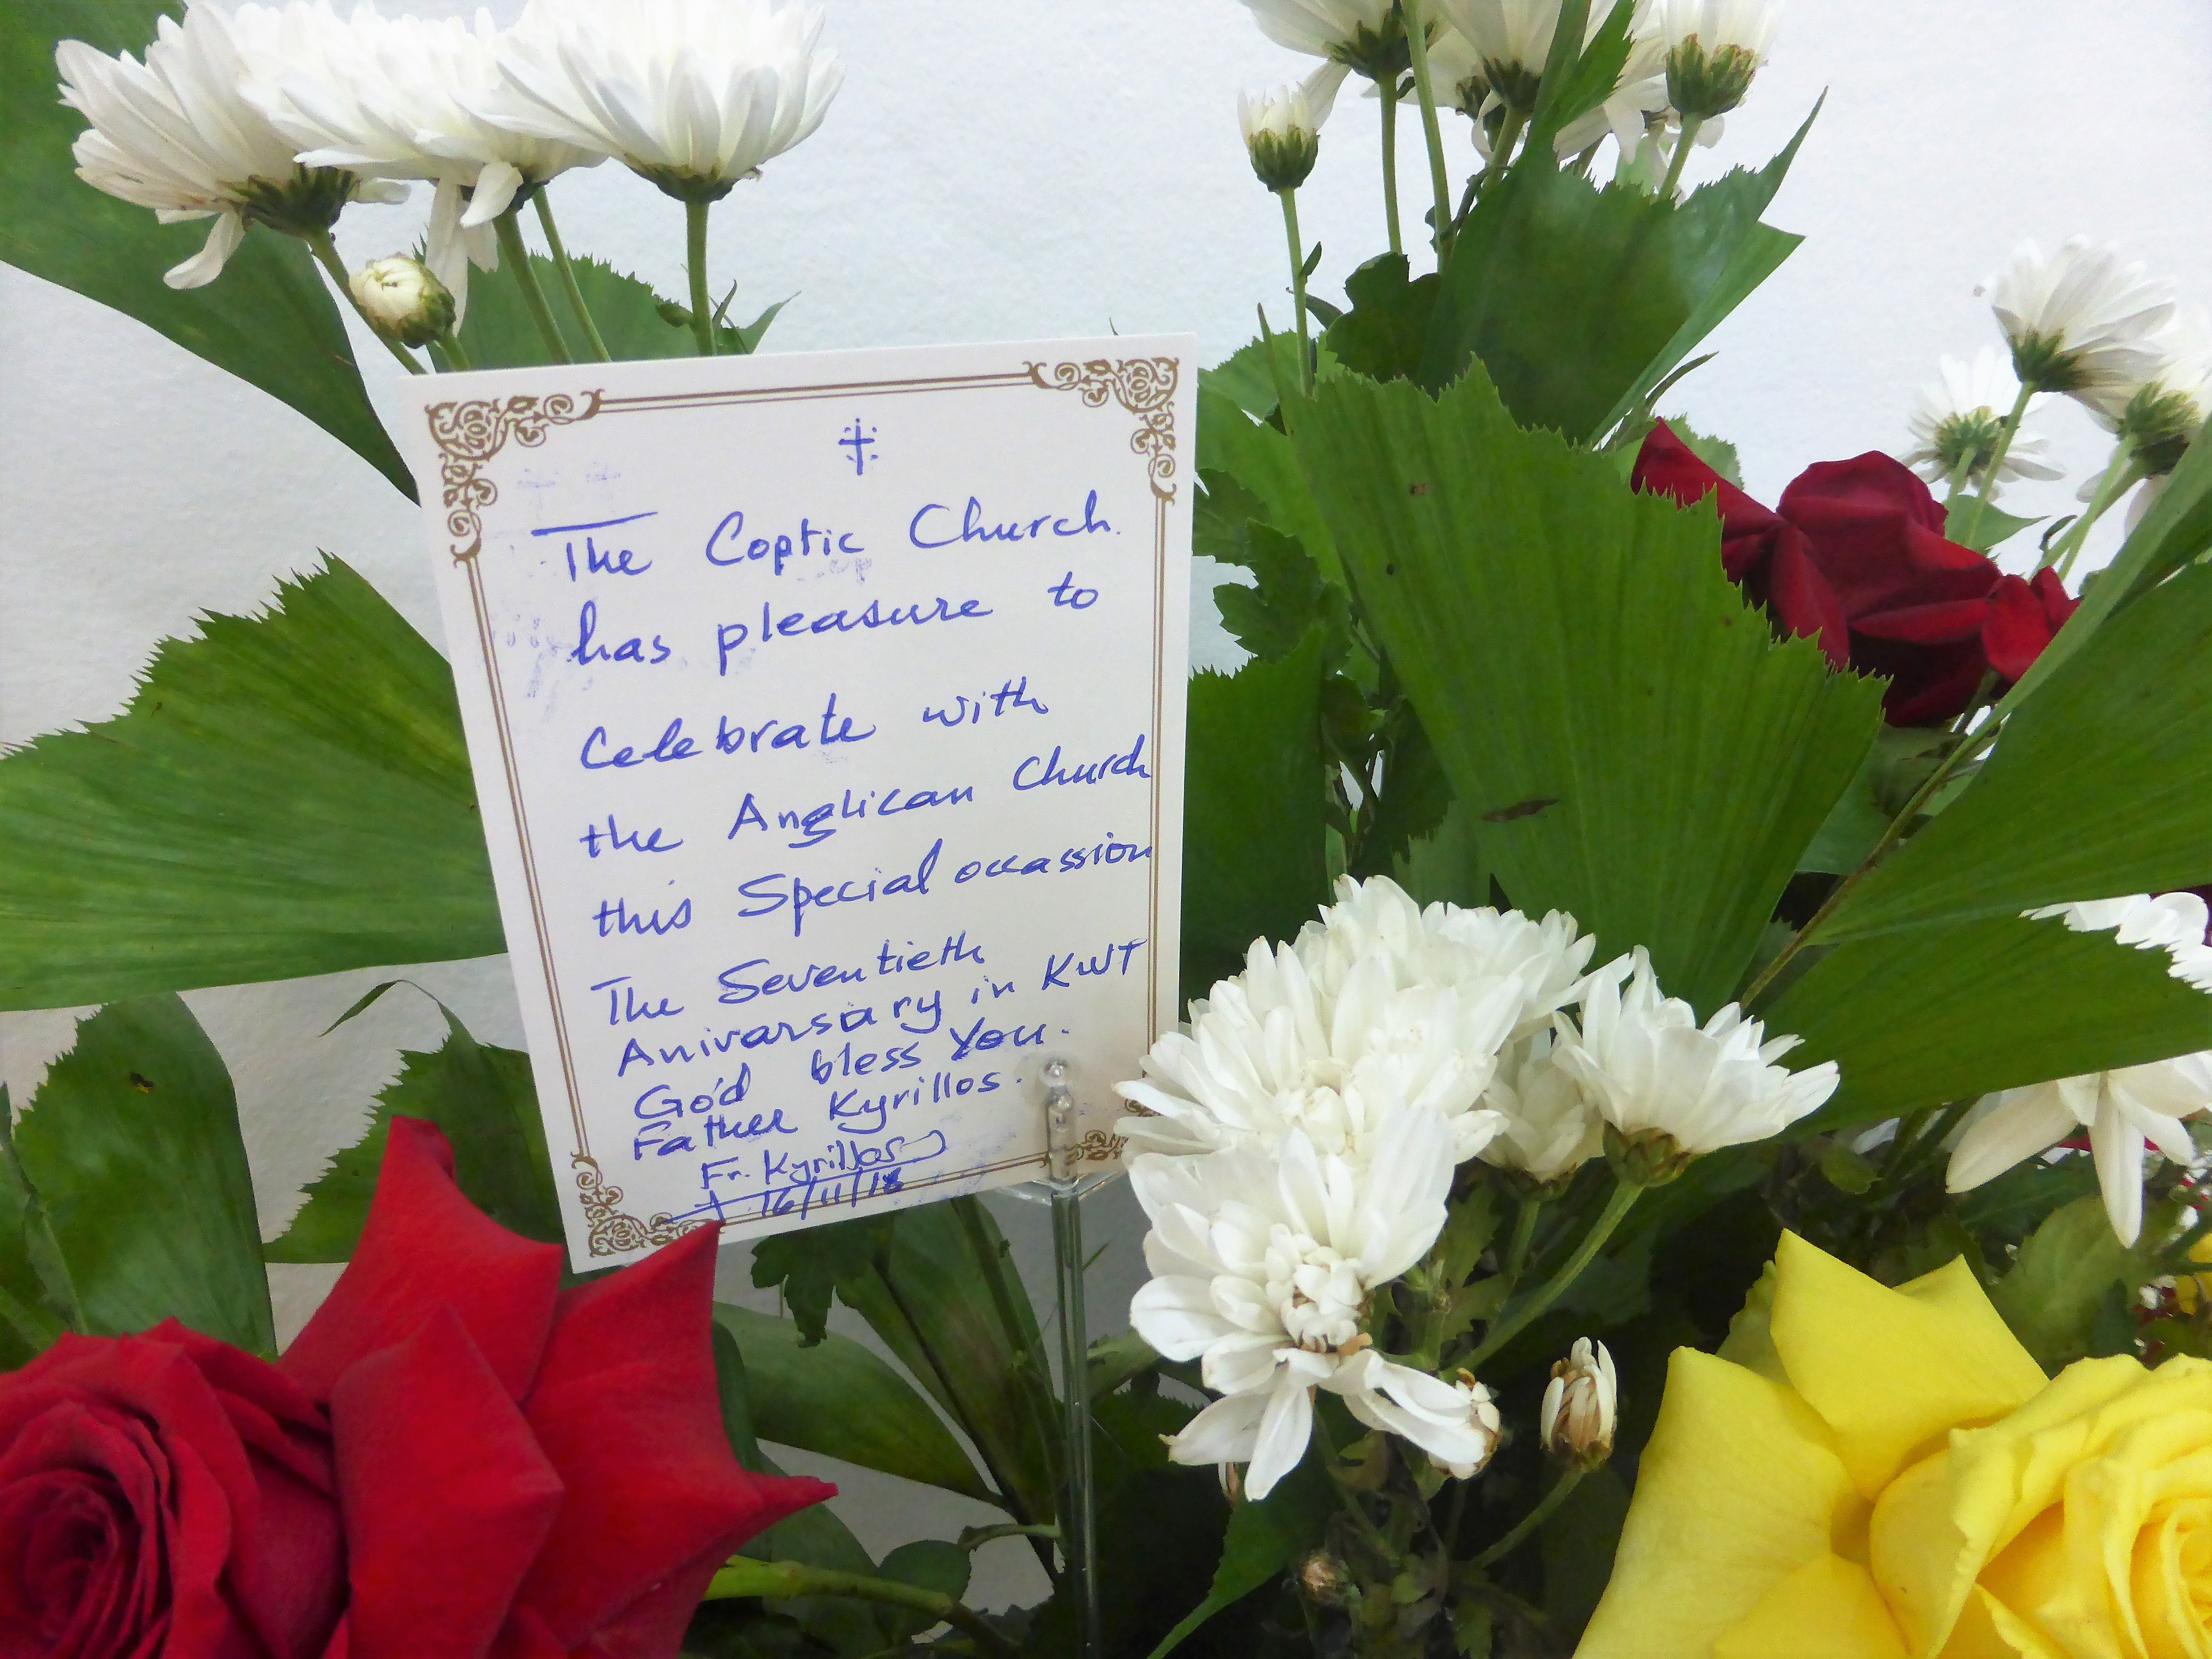 The Coptic Church.
has pleasure to
Celebrate with
the Anglican Church
this Special occassion
The Seventieth
Anivarsary in KWT
God bless You.
Father Kyrillos.
Fr. Kyrillos
16/11/18